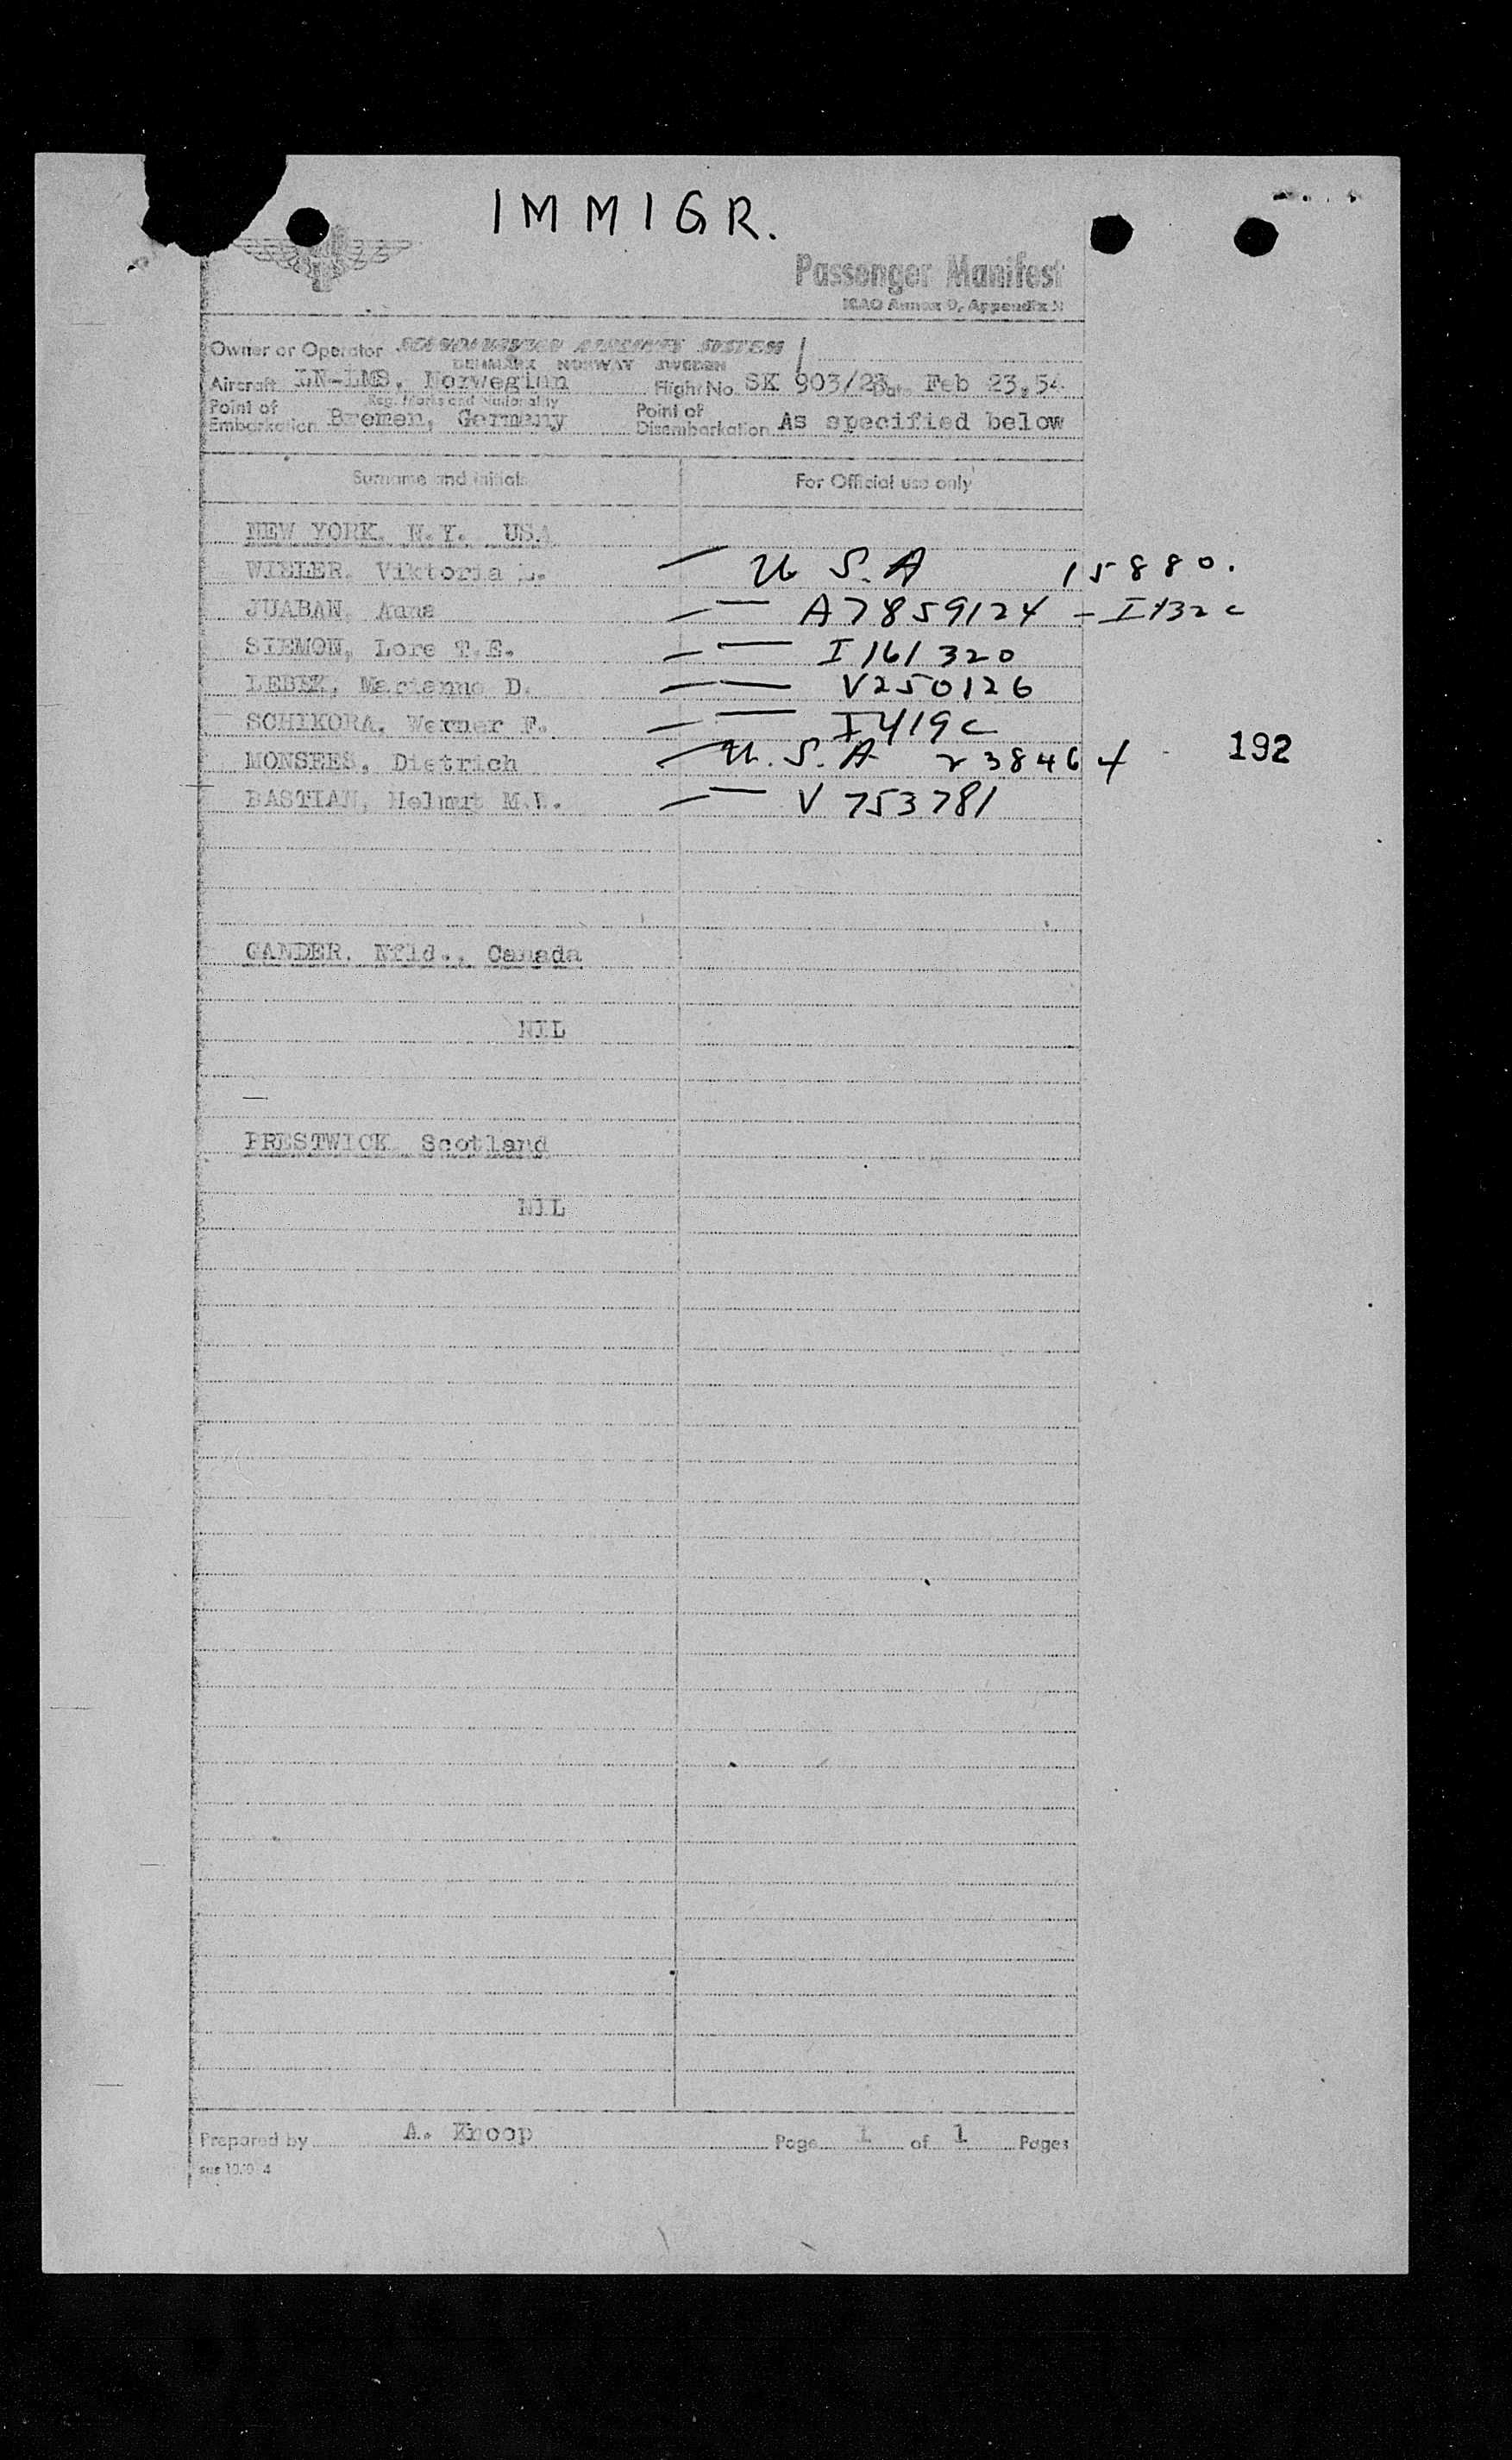 IMMIGR.
Passenger Manifest
ICAO Annex 9, Appendix
Owner or Operator SCANDINAVIAN AIRLINES SYSTEM
DENMARK NORWAY SWEDEN
Aircraft LN-LMB, Norwegian Flight No. SK 903/23 Date Feb 23,54
Reg. Marks and Nationality
Point of Embarkation Bremen, Germany Point of Disembarkation As specified below
Surname and initials For Official use only
NEW YORK, N.Y. USA
Viktoria L. — U S.A 15880.
JUABAN, Anna — — A7859124 -
SIEMON, Lore T.E. — — I 161 320
LEBEK, Marianne D. — — V250126
SCHIKORA, Werner F. — — I419c
MONSEES, Dietrich — U.S.A 238464 192
BASTIAN, Helmut — — V 753781
GANDER, Nfld., Canada
NIL
PRESTWICK Scotland
NIL
Prepared by A. Knoop Page 1 of 1 Pages